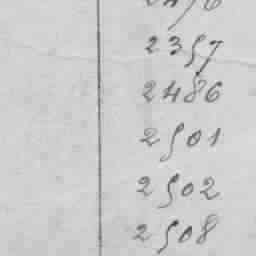 2357
2486
2501
2502
2508